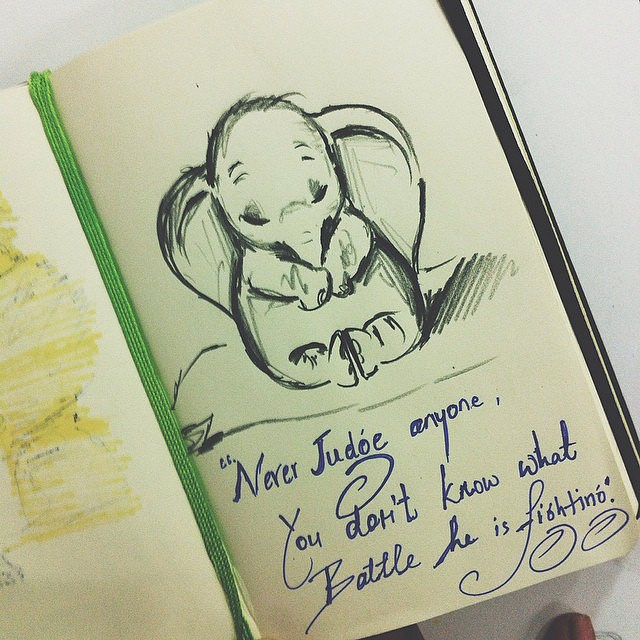 "Never Judge anyone,
You don't know what
Battle he is fishting."